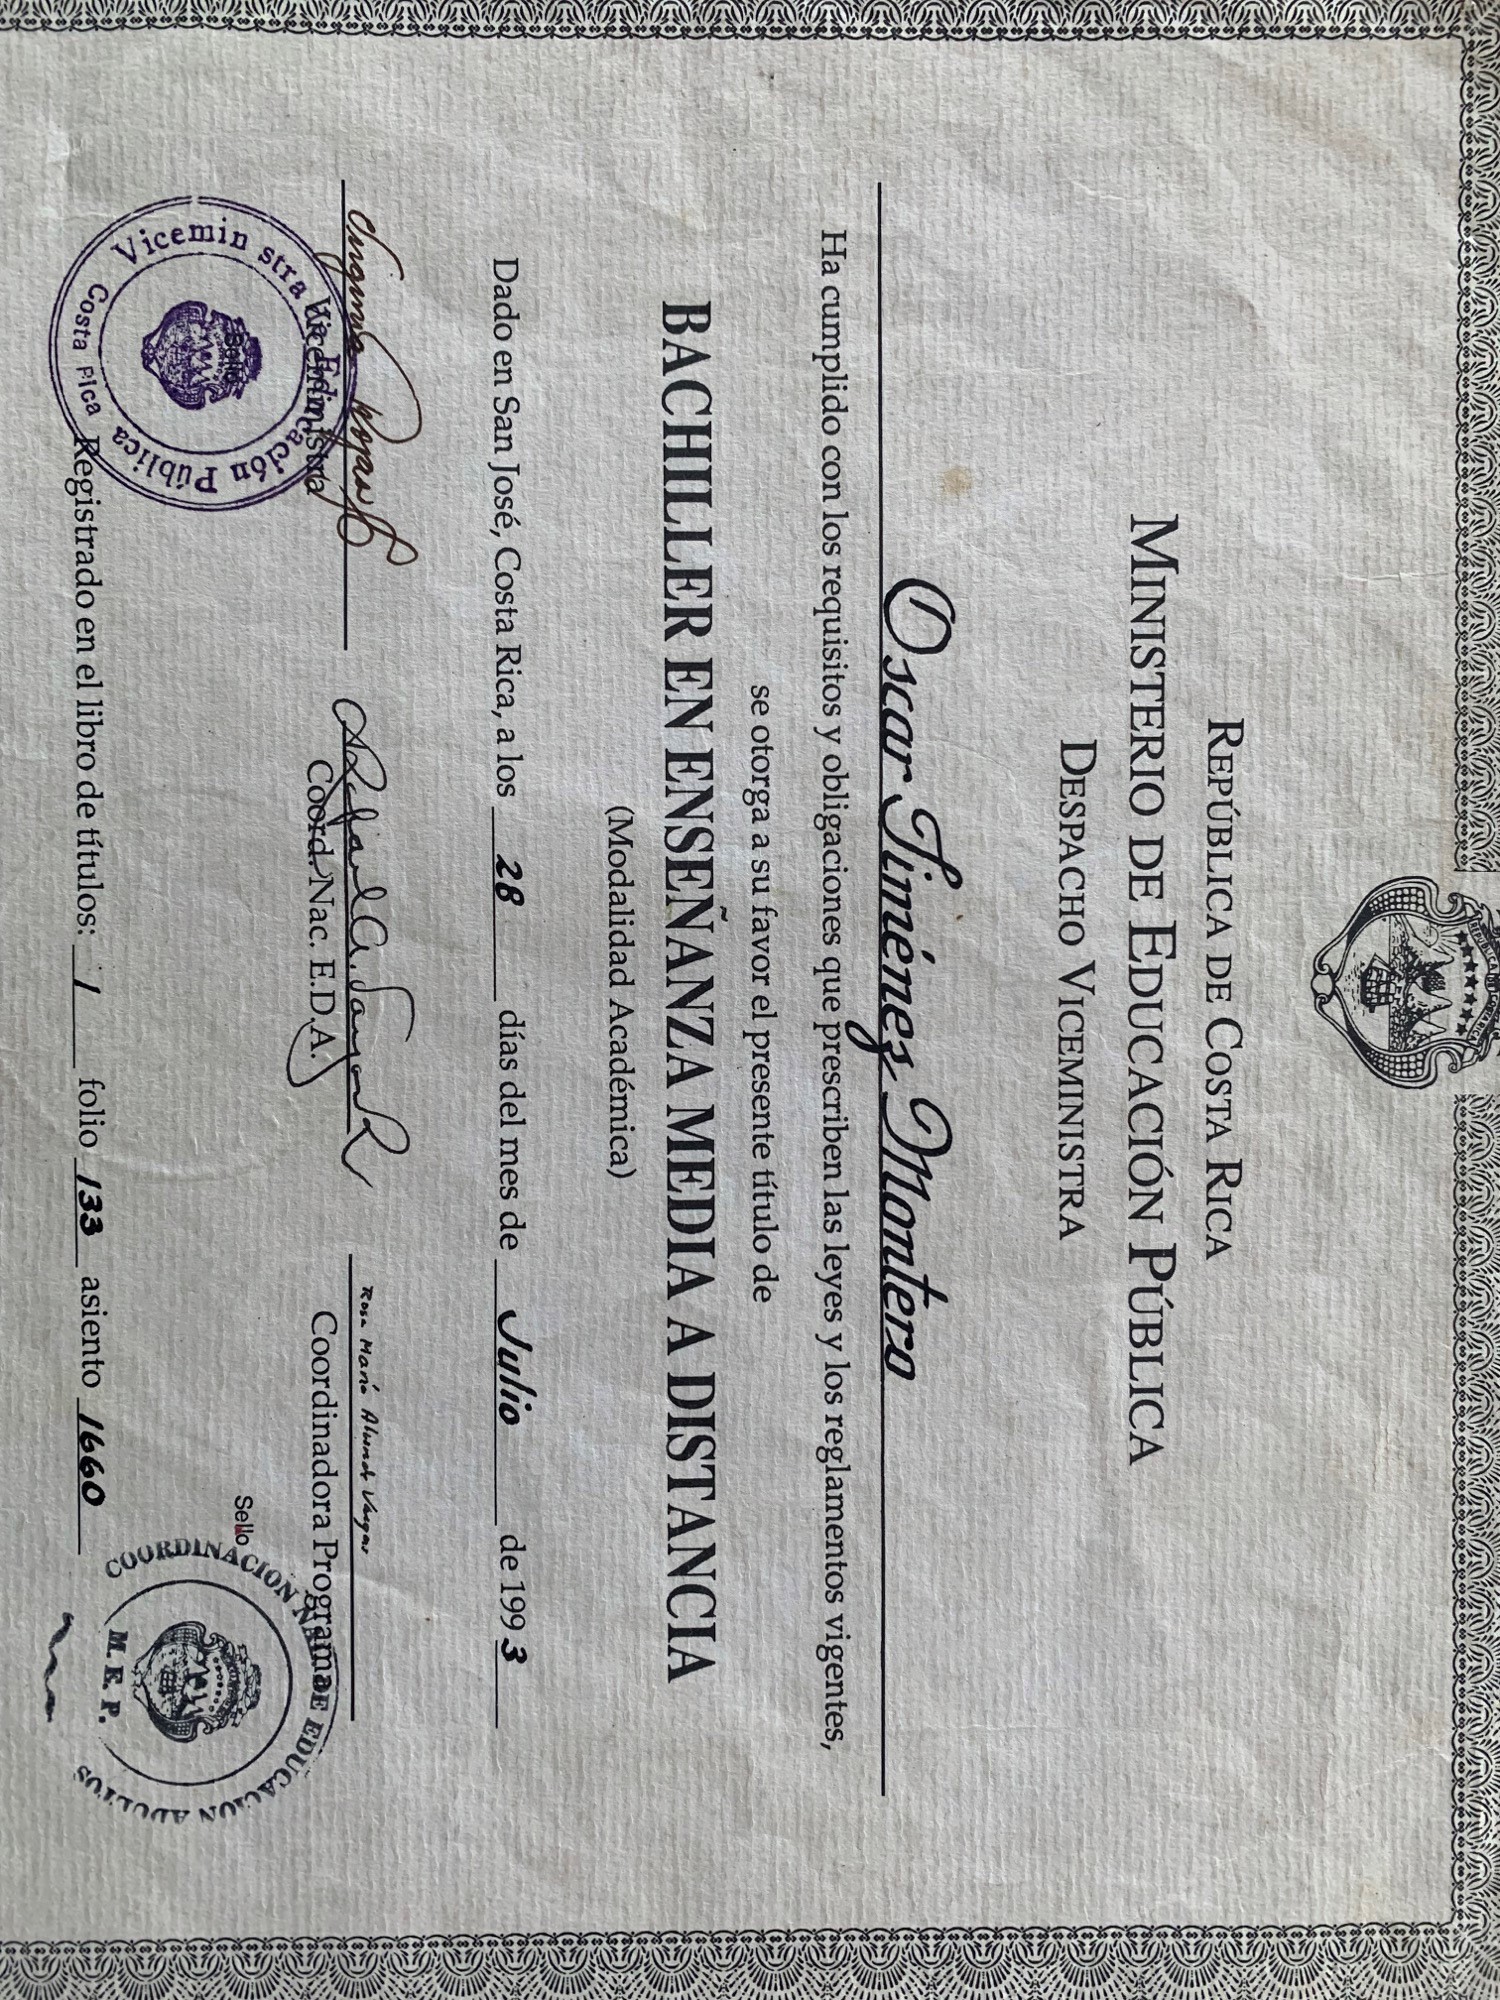 REPÚBLICA DE COSTA RICA
MINISTERIO DE EDUCACIÓN PÚBLICA
DESPACHO VICEMINISTRA
Oscar Jiménez Montero
Ha cumplido con los requisitos y obligaciones que prescriben las leyes y los reglamentos vigentes,
se otorga a su favor el presente título de
BACHILLER EN ENSEÑANZA MEDIA A DISTANCIA
(Modalidad Académica)
Dado en San José, Costa Rica, a los 28 días del mes de Julio de 1993
Viceministra
Coord. Nac. E.D.A.
Rosa María Vargas
Coordinadora Programa
Sello
Vicemin stra Educación Pública
Costa Rica
Sello
COORDINACION NAL DE EDUCACION ADULTOS
M. E. P.
Registrado en el libro de títulos: 1 folio 133 asiento 1660